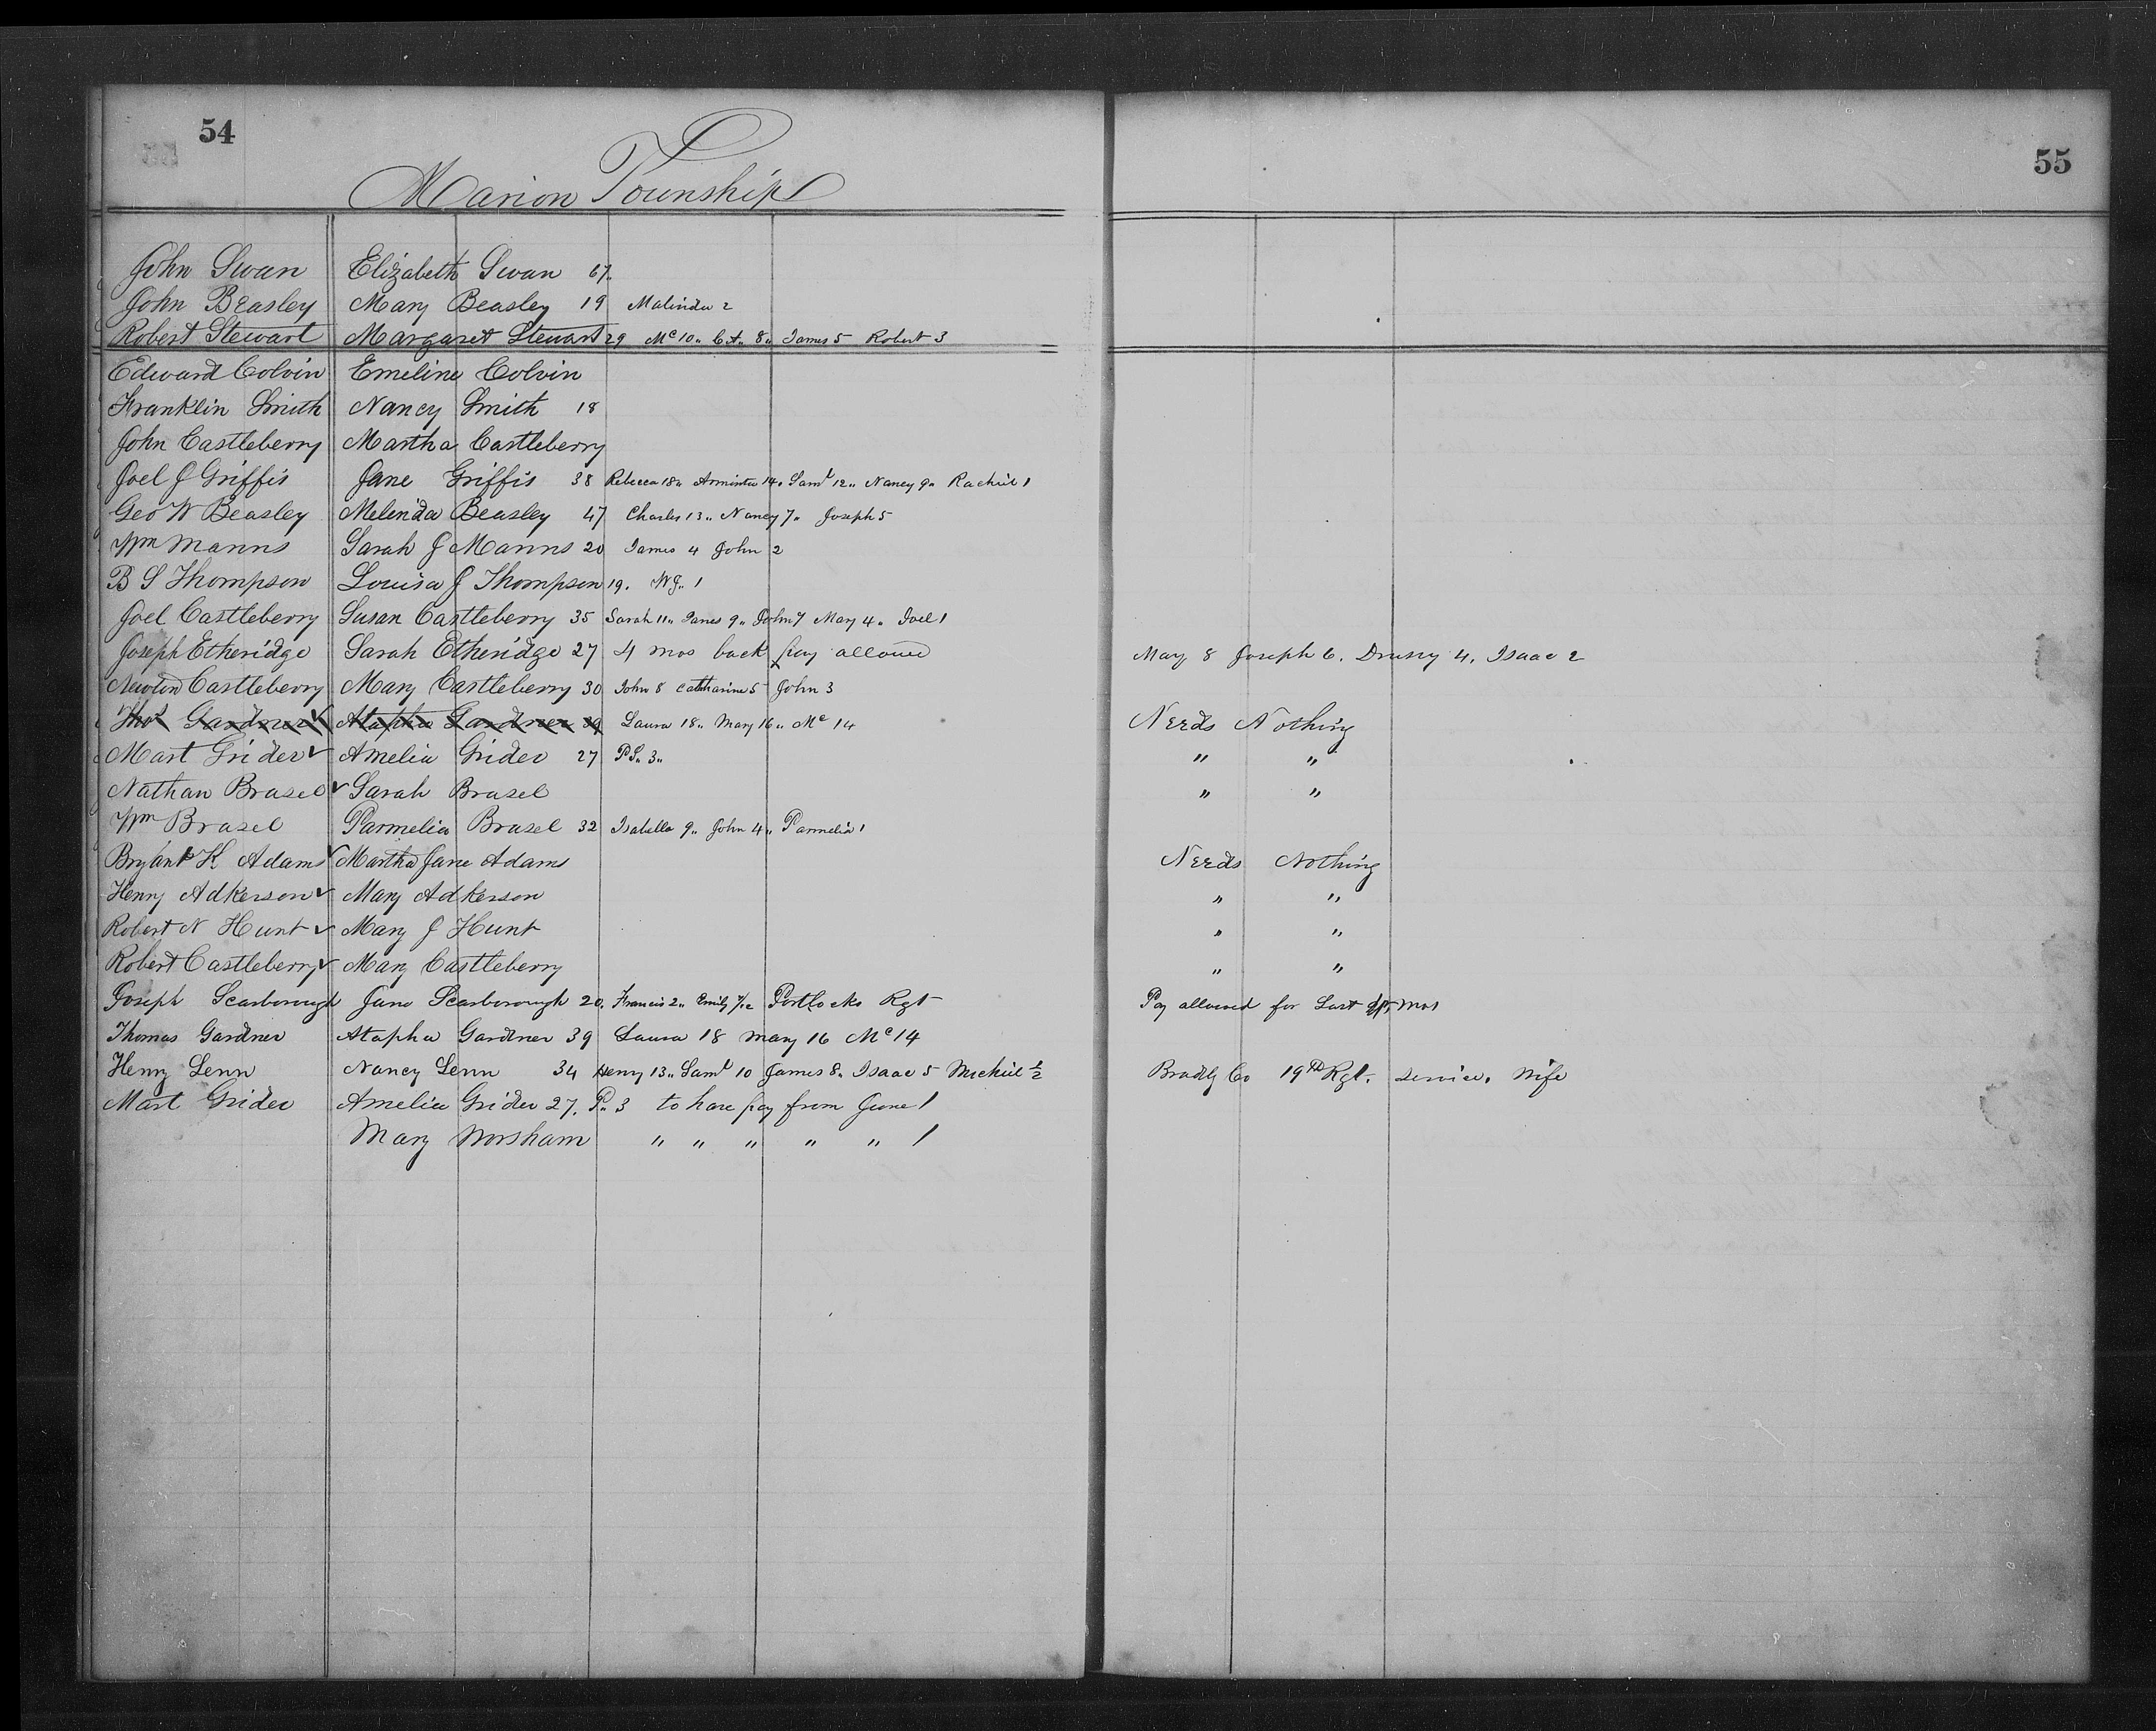 54
55
Marion Township
John Swan Elizabeth Swan 67"
John Beasley Mary Beasley 19 Malinda 2
Robert Stewart Margaret Stewart 29 Mc 10" C A" 8" James 5 Robert 3
Edward Colvin Emeline Colvin
Franklin Smith Nancy Smith 18
John Castleberry Martha Castleberry
Joel J Griffis Jane Griffis 38 Rebecca 18" Arminta 14" Saml 12" Nancy 9" Rachiel 1
Geo W Beasley Melinda Beasley 47 Charles 13" Nancy 7" Joseph 5
Wm Manns Sarah J Manns 20 James 4 John 2
B S Thompson Louisa J Thompson 19. W J" 1
Joel Castleberry Susan Castleberry 35 Sarah 11" Janes 9" John 7 Mary 4" Joel 1
Joseph Etheridge Sarah Etheridge 27 4 mos back pay allowed May 8 Joseph 6. Drusry 4. Isaac 2
Newton Castleberry Mary Castleberry 30 John 8 Catharine 5 John 3
Thos Gardner ✓ Atapha Gardner 39 Laura 18" Mary 16" Mc 14 Needs Nothing
Mart Grider ✓ Amelia Grider 27 P S" 3" " "
Nathan Brasel ✓ Sarah Brasel " "
Wm Brasel Parmelia Brasel 32 Isabella 9" John 4" Parmelia 1
Bryant K Adams ✓ Martha Jane Adams Needs Nothing
Henry Adkerson ✓ Mary Adkerson " "
Robert N Hunt ✓ Mary J Hunt " "
Robert Castleberry ✓ Mary Castleberry " "
Joseph Scarborough Jane Scarborough 20. Francis 2" Emily 7/12 Portlocks Rgt Pay allowed for Last mos
Thomas Gardner Atapha Gardner 39 Laura 18 Mary 16 Mc 14
Henry Lenn Nancy Lenn 34 Henry 13" Saml 10 James 8" Isaac 5 Michiel 1/2 Bradly Co 19th Rgt. service. Wife
Mart Grider Amelia Grider 27. P" 3 to have pay from June 1
Mary Worsham " " " " " 1